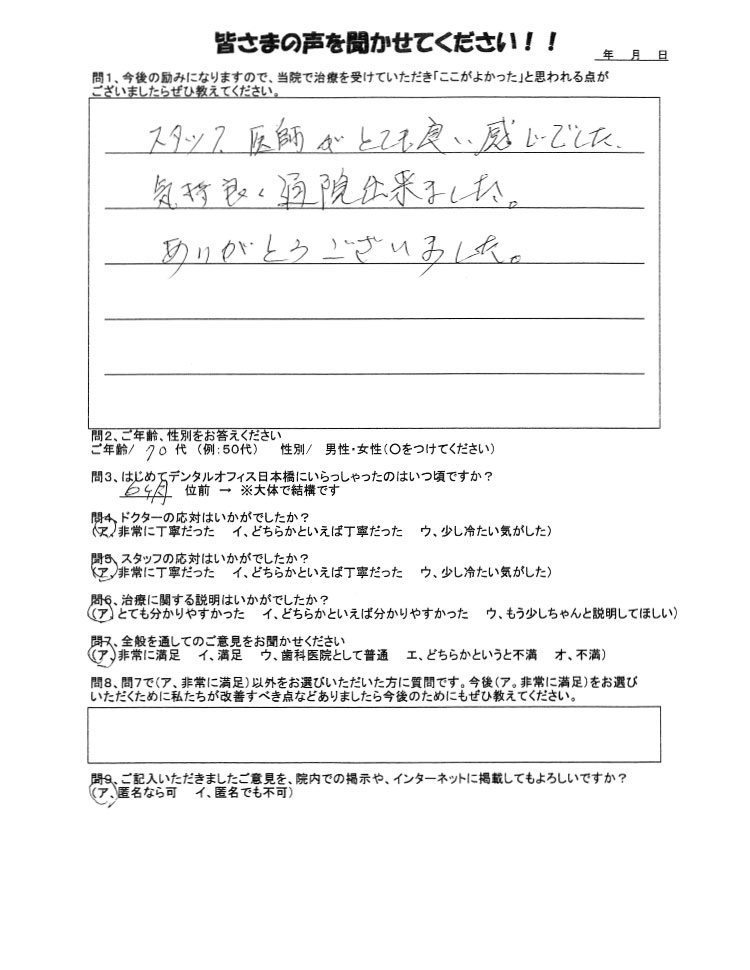 皆さまの声を聞かせてください！！
年 月 日
問1、今後の励みになりますので、当院で治療を受けていただき「ここがよかった」と思われる点が
ございましたらぜひ教えてください。
スタッフ、医師がとても良い感じでした、
気持良く通院出来ました。
ありがとうございました。
問2、ご年齢、性別をお答えください
ご年齢/ 70 代 （例：50代） 性別/ 男性・女性（〇をつけてください）
問3、はじめてデンタルオフィス日本橋にいらっしゃったのはいつ頃ですか？
6ヶ月 位前 → ※大体で結構です
問4、ドクターの応対はいかがでしたか？
（ア、非常に丁寧だった イ、どちらかといえば丁寧だった ウ、少し冷たい気がした）
問5、スタッフの応対はいかがでしたか？
（ア、非常に丁寧だった イ、どちらかといえば丁寧だった ウ、少し冷たい気がした）
問6、治療に関する説明はいかがでしたか？
（ア、とても分かりやすかった イ、どちらかといえば分かりやすかった ウ、もう少しちゃんと説明してほしい）
問7、全般を通してのご意見をお聞かせください
（ア、非常に満足 イ、満足 ウ、歯科医院として普通 エ、どちらかというと不満 オ、不満）
問8、問7で（ア、非常に満足）以外をお選びいただいた方に質問です。今後（ア。非常に満足）をお選び
いただくために私たちが改善すべき点などありましたら今後のためにもぜひ教えてください。
問9、ご記入いただきましたご意見を、院内での掲示や、インターネットに掲載してもよろしいですか？
（ア、匿名なら可 イ、匿名でも不可）